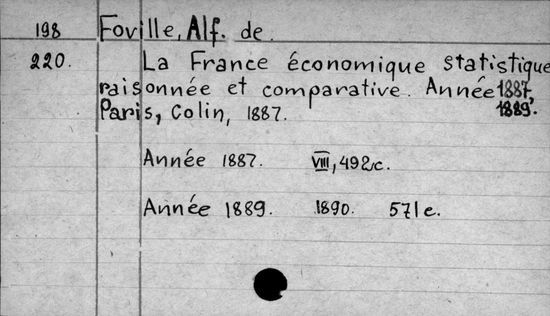 198 Foville, Alf. de.
220. La France économique statistique
raisonnée et comparative. Année 1887,
1889.
Paris, Colin, 1887.
Année 1887. VIII, 492c.
Année 1889. 1890. 571c.